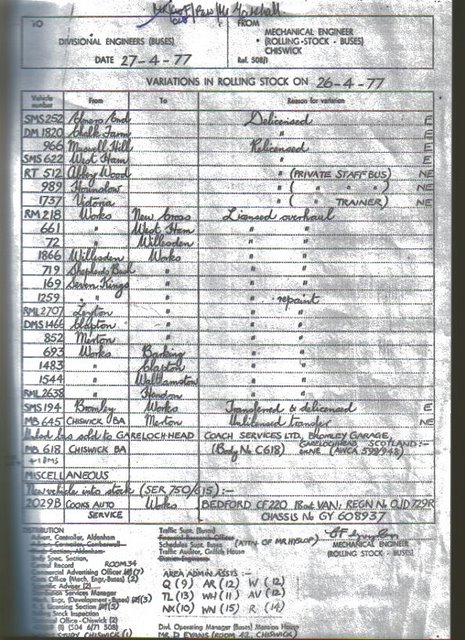 TO
FROM
DIVISIONAL ENGINEERS (BUSES)
MECHANICAL ENGINEER
(ROLLING-STOCK - BUSES)
CHISWICK
DATE 27-4-77
Ref. 508/1
VARIATIONS IN ROLLING STOCK ON 26-4-77
Vehicle number From To Reason for variation
SMS 252 Elmers End Delicensed E
DM 1820 Chalk Farm " E
966 Muswell Hill Relicensed E
SMS 622 West Ham " E
RT 512 Abbey Wood " (PRIVATE STAFF BUS) NE
989 Hounslow " ( " " " ) NE
1737 Victoria " ( " TRAINER) NE
RM 218 Works New Cross Licensed overhaul
661 " West Ham " "
72 " Willesden " "
1866 Willesden Works " "
719 Shepherds Bush " " "
169 Seven Kings " " "
1259 " " " repaint
RML 2707 Leyton " " "
DMS 1466 Clapton " " "
852 Merton " " "
693 Works Barking " "
1483 " Clapton " "
1544 " Walthamstow " "
RML 2638 " Hendon " "
SMS 194 Bromley Works Transferred & delicensed E
MB 645 CHISWICK BA Merton Unlicensed transfer NE
sold to GARELOCHHEAD COACH SERVICES LTD, BROMLEY GARAGE,
GARELOCHHEAD, SCOTLAND :-
MB 618 CHISWICK BA (Body No C618)
MISCELLANEOUS
New vehicles into stock (SER 750/615) :-
2029B COOKS AUTO SERVICE Works BEDFORD CF220 VAN; REGN No OJD 729R
CHASSIS No GY 608937
DISTRIBUTION
Advert. Controller, Aldenham
Body Spec. Section,
Central Record ROOM 34
Commercial Advertising Officer (7)
Scientific Adviser (2)
Distribution Services Manager
Mech. Engr. (Development - Buses) (3)
R. S. Licensing Section (5)
Office - Chiswick (2)
Traffic Supt. (Buses)
Financial Research Officer
Schedules Supt. Buses (ATTN OF MR HYSLOP)
Traffic Auditor, Griffith House
MECHANICAL ENGINEER
(ROLLING STOCK - BUSES)
AREA ADMIN ASSTS :-
Q (9) AR (12) W (12)
TL (13) WH (11) AV (12)
NX (10) WN (15) R (14)
Divl. Operating Manager (Buses) Mansion House
MR D EVANS (ROOM 42, CHISWICK)